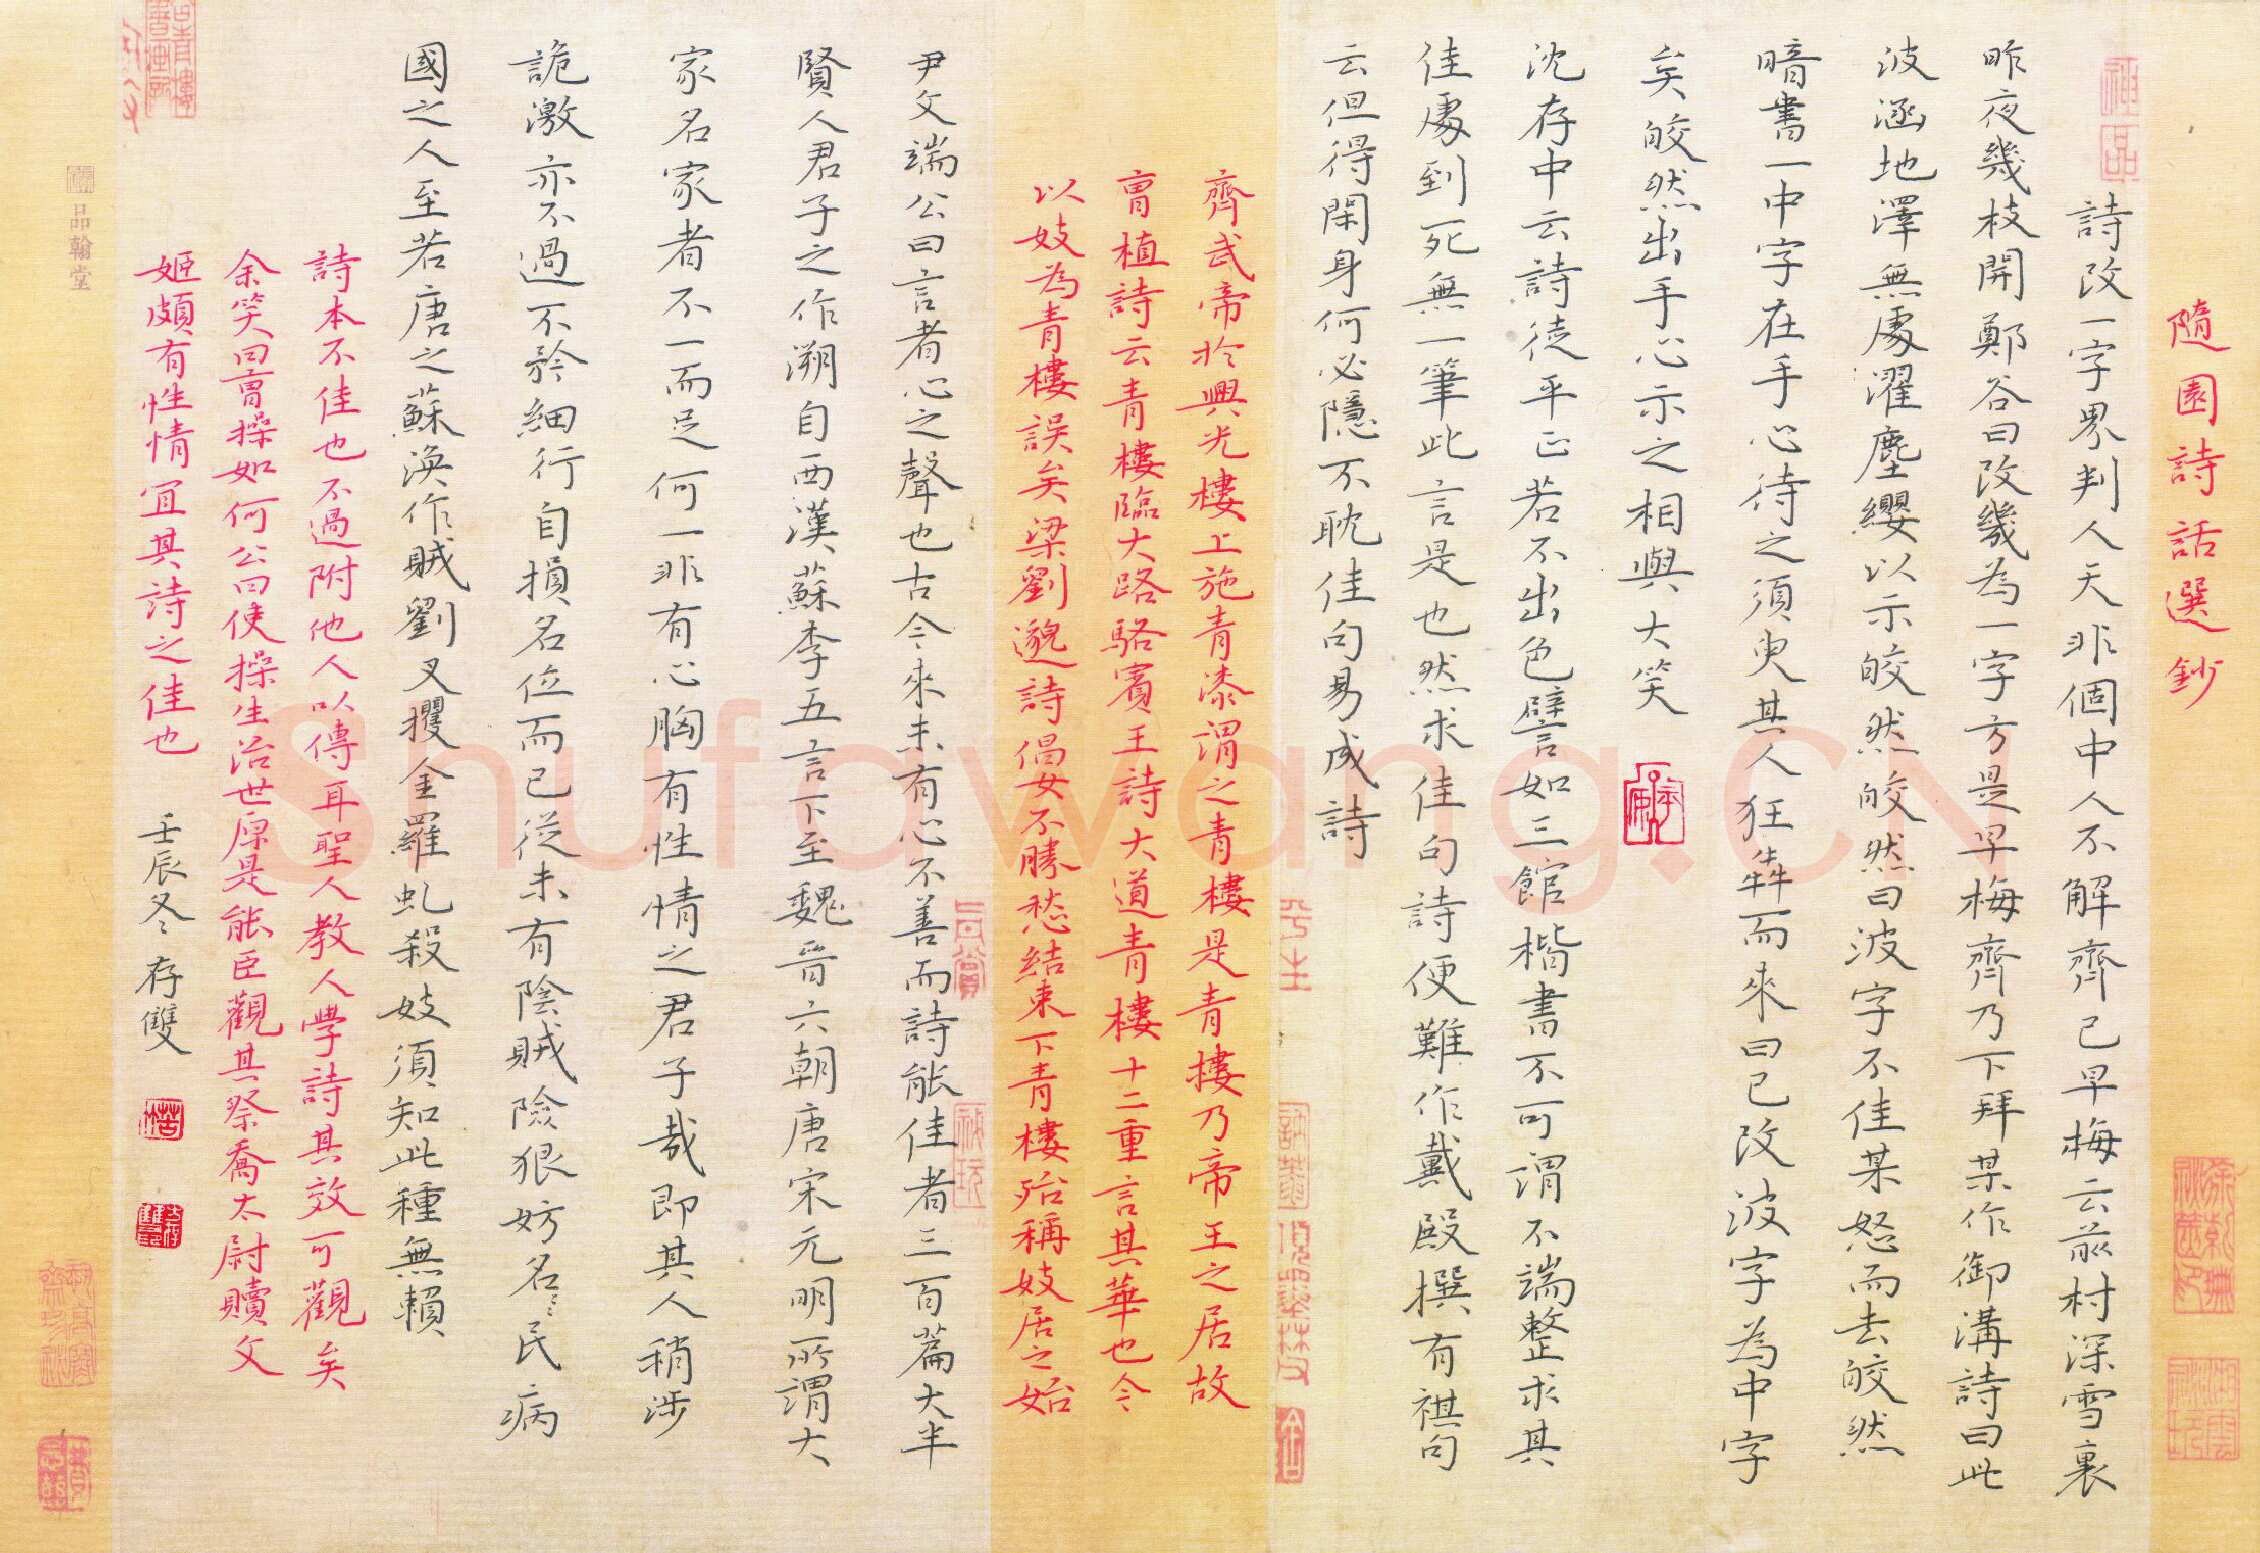 隨園詩話選鈔
詩改一字界判人天非個中人不解齊己早梅云前村深雪裏
昨夜幾枝開鄭谷曰改幾為一字方是早梅齊乃下拜某作御溝詩曰此
波涵地澤無處濯塵纓以示皎然皎然曰波字不佳某怒而去皎然
暗書一中字在手心待之須臾其人狂犇而來曰已改波字為中字
矣皎然出手心示之相與大笑
沈存中云詩徒平正若不出色譬如三館楷書不可謂不端整求其
佳處到死無一筆此言是也然求佳句詩便難作戴殿撰有祺句
云但得閑身何必隱不耽佳句易成詩
齊武帝於興光樓上施青漆謂之青樓是青樓乃帝王之居故
曹植詩云青樓臨大路駱賓王詩大道青樓十二重言其華也今
以妓為青樓誤矣梁劉邈詩倡女不勝愁結束下青樓殆稱妓居之始
尹文端公曰言者心之聲也古今來未有心不善而詩能佳者三百篇大半
賢人君子之作溯自西漢蘇李五言下至魏晉六朝唐宋元明所謂大
家名家者不一而足何一非有心胸有性情之君子哉即其人稍涉
詭激亦不過不矜細行自損名位而已從未有陰賊險狠妨名〻民病
國之人至若唐之蘇渙作賊劉叉攫金羅虬殺妓須知此種無賴
詩本不佳也不過附他人以傳耳聖人教人學詩其效可觀矣
余笑曰曹操如何公曰使操生治世原是能臣觀其祭喬太尉贖文
姬頗有性情宜其詩之佳也
壬辰冬存雙
品翰堂
神品
Shufawang.CN